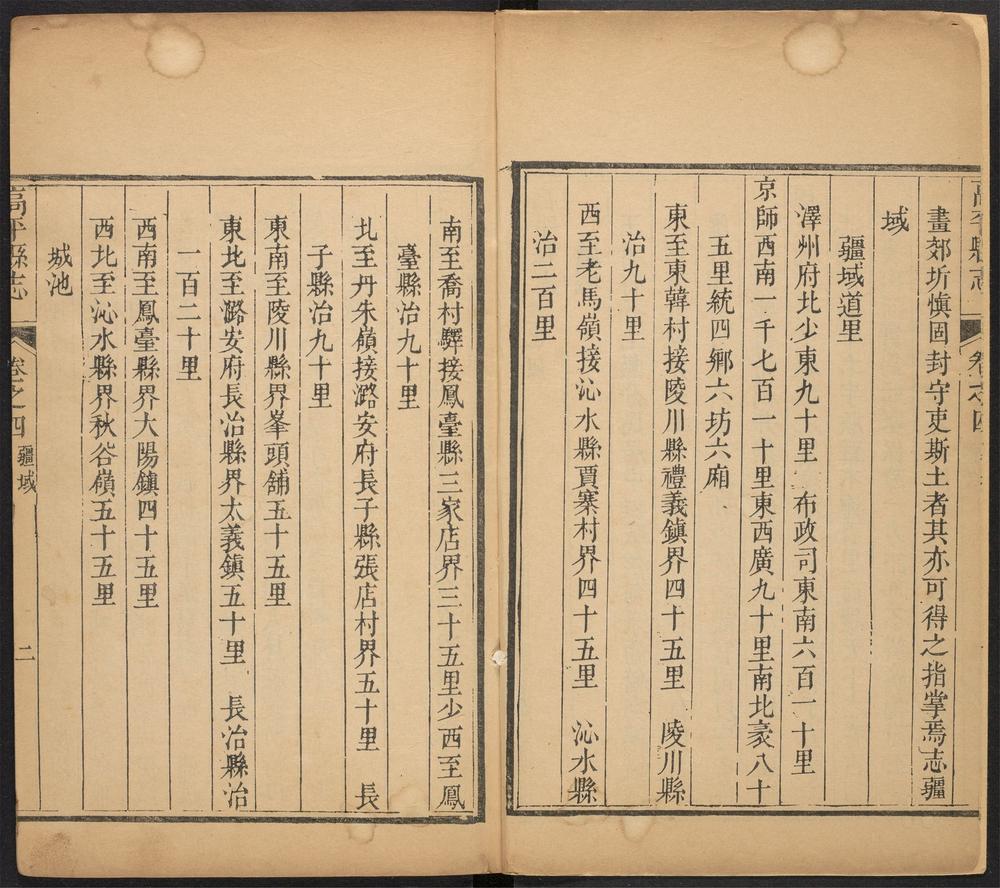 畫郊圻慎固封守吏斯土者其亦可得之指掌焉志疆
域
疆域道里
澤州府北少東九十里　布政司東南六百一十里
京師西南一千七百一十里東西廣九十里南北袤八十
五里統四鄉六坊六廂
東至東韓村接陵川縣禮義鎮界四十五里　陵川縣
治九十里
西至老馬嶺接沁水縣賈寨村界四十五里　沁水縣
治二百里
南至喬村驛接鳳臺縣三家店界三十五里少西至鳳
臺縣治九十里
北至丹朱嶺接潞安府長子縣張店村界五十里　長
子縣治九十里
東南至陵川縣界峯頭舖五十五里
東北至潞安府長治縣界太義鎮五十里　長治縣治
一百二十里
西南至鳳臺縣界大陽鎮四十五里
西北至沁水縣界秋谷嶺五十五里
城池
高平縣志　卷之四　疆域　二